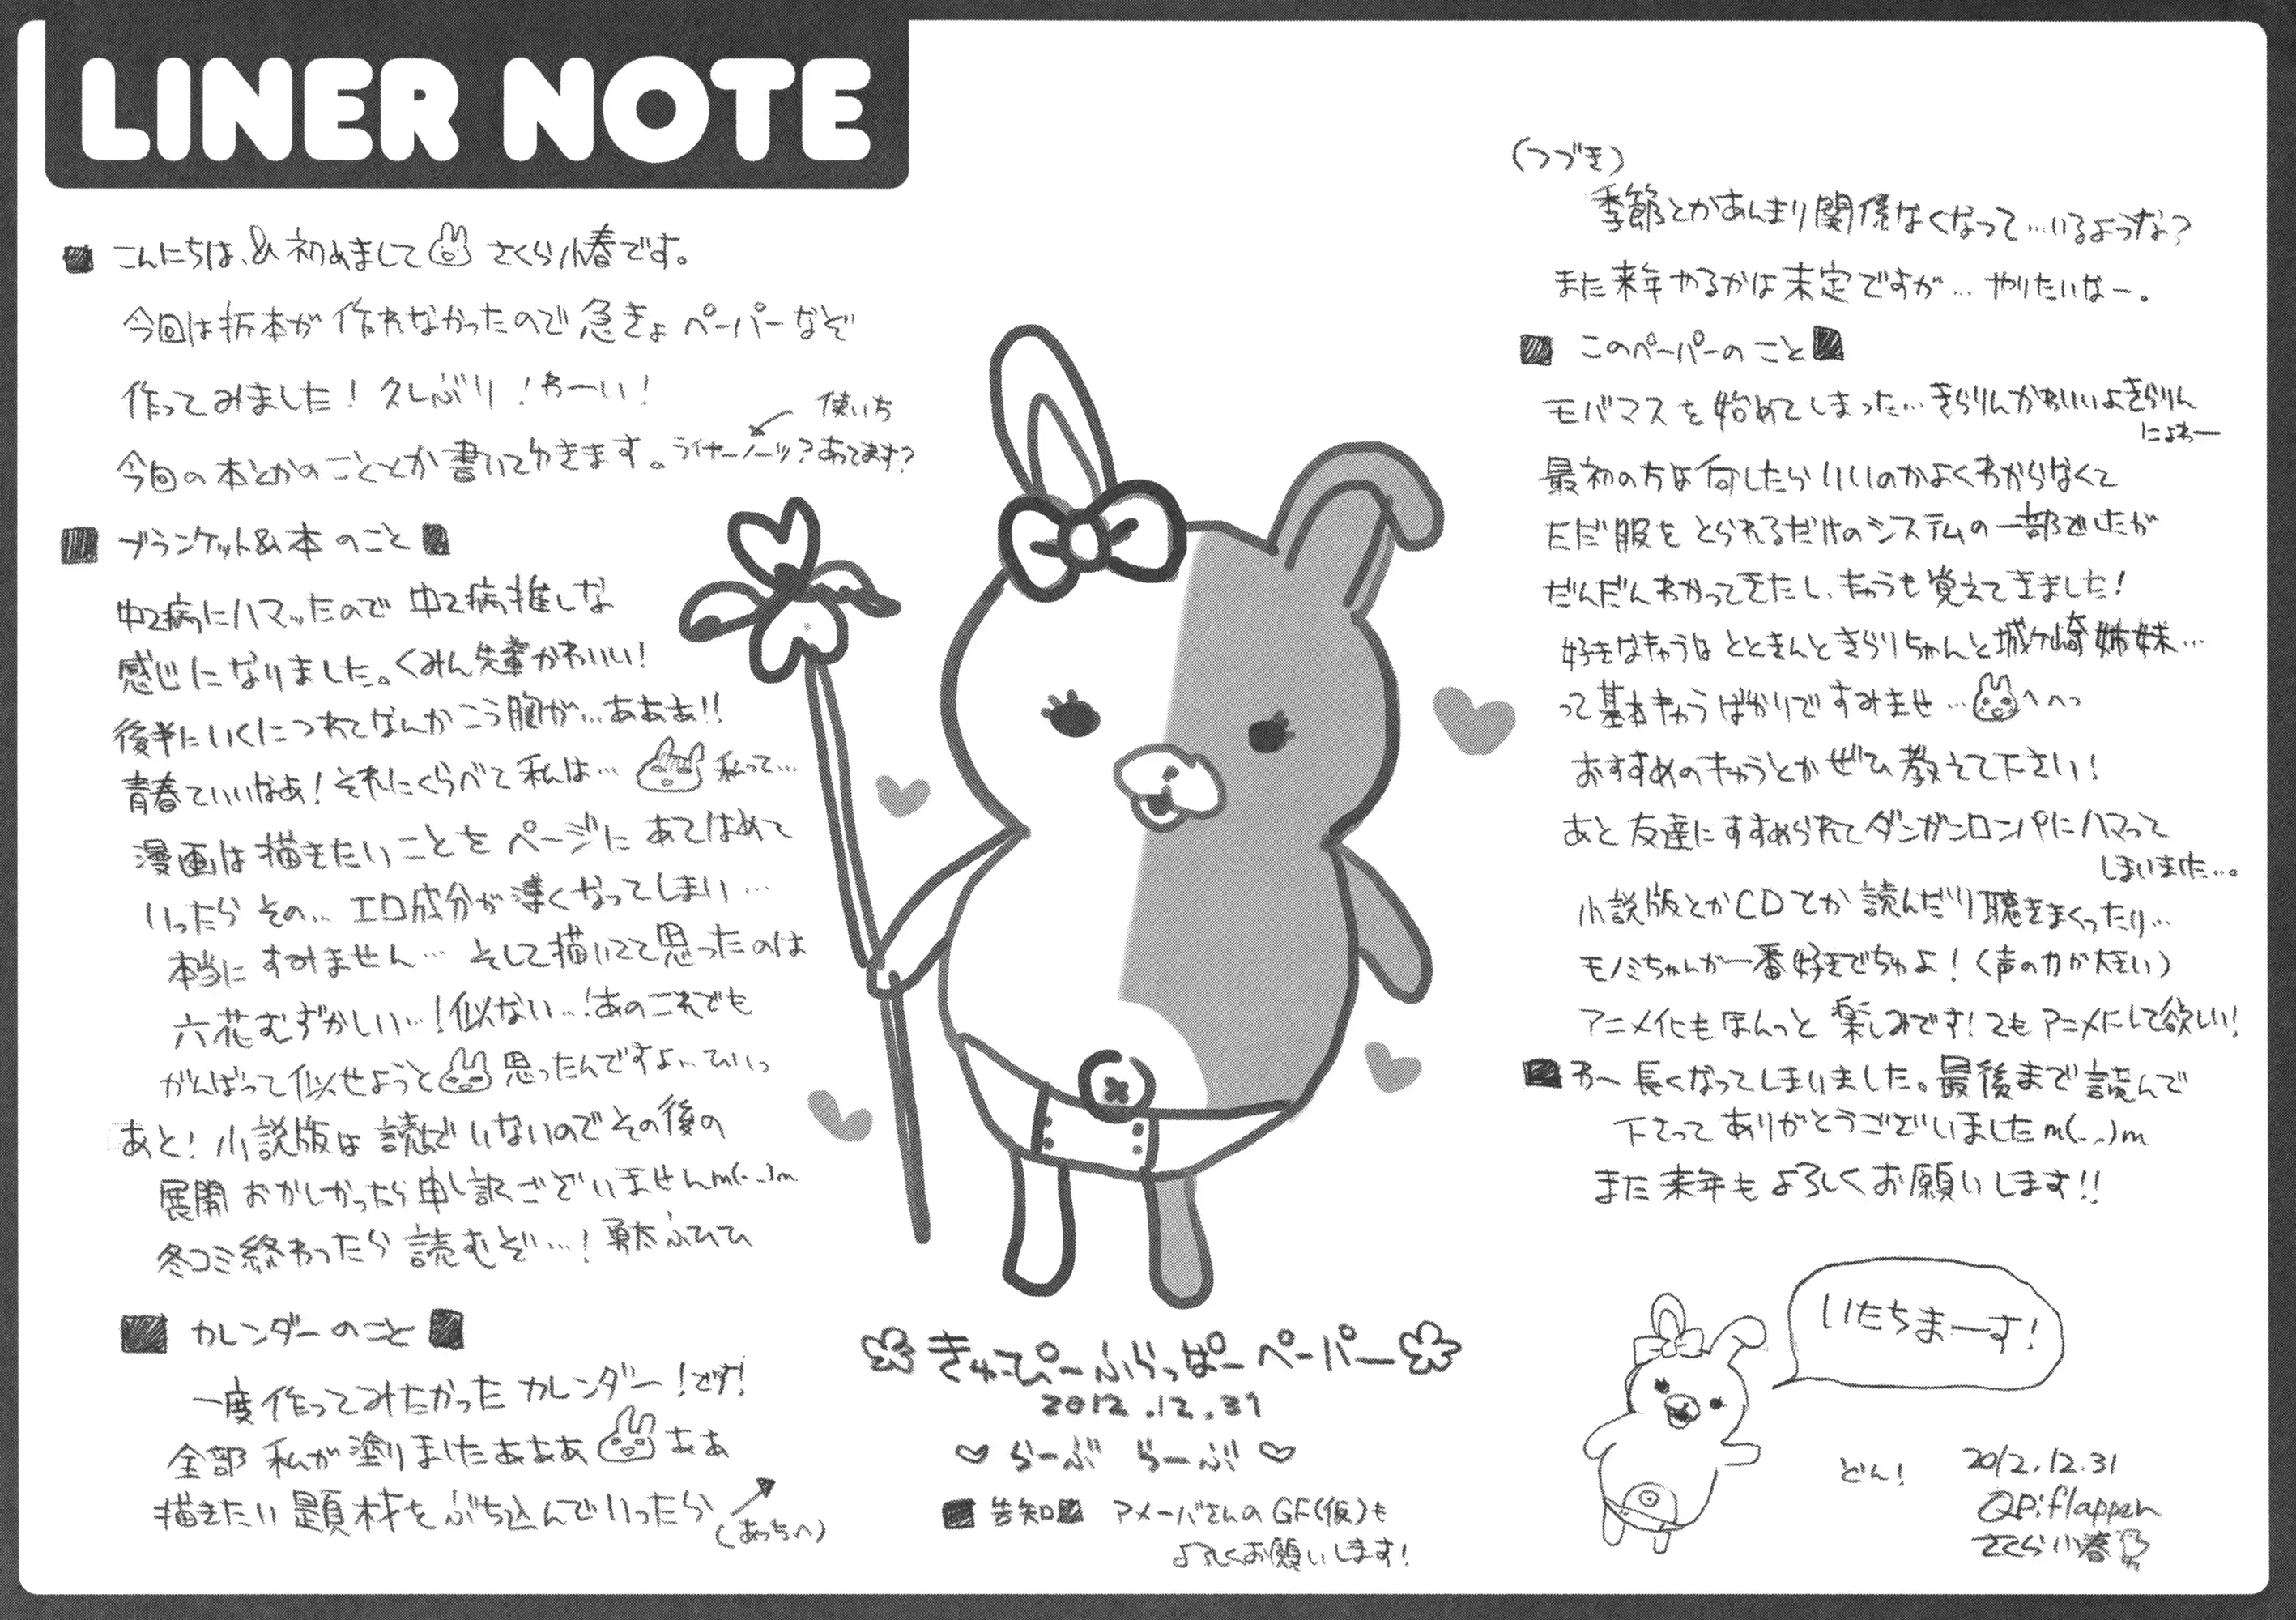 LINER NOTE
■ こんにちは、&初めまして さくら小春です。
今回は折本が作れなかったので急きょペーパーなぞ
作ってみました! 久しぶり!わーい!
今回の本とかのことか書いてゆきます。ライナーノーツ?あってます?
使いち
■ ブランケット&本のこと ■
中2病にハマッたので 中2病推しな
感じになりました。くみん先輩かわいい!
後半にいくにつれてなんかこう胸が…あああ!!
青春ていいなあ!それにくらべて私は… 私って…
漫画は描きたいことをページにあてはめて
いったらその… エロ成分が薄くなってしまい…
本当にすみません… そして描いてて思ったのは
六花むずかしい…!似ない…!あのこれでも
がんばって似せようと 思ったんですよ…ひいっ
あと! 小説版は読んでいないのでその後の
展開おかしかったら申し訳ございませんm(_ _)m
冬コミ終わったら読むぞ…! 勇太ふひひ
■ カレンダーのこと ■
一度作ってみたかったカレンダー!です!
全部私が塗りましたぁぁあ ぁぁ
描きたい題材をぶち込んでいったら
(あっちへ)
きゅーぴーふらっぱーペーパー
2012.12.31
♡らーぶ らーぶ♡
■告知■ アメーバさんのGF(仮)も
よろしくお願いします!
(つづき)
季節とかあんまり関係なくなって…いるような?
また来年やるかは未定ですが… やりたいなー。
■ このペーパーのこと ■
モバマスを始めてしまった…きらりんかわいいよきらりん
にょわー
最初の方は何したらいいのかよくわからなくて
ただ服をとられるだけのシステムの一部でしたが
だんだんわかってきたし、キャラも覚えてきました!
好きなキャラはとときんときらりちゃんと城ヶ崎姉妹…
って基本キャラばかりですみませ… へへっ
おすすめのキャラとかぜひ教えて下さい!
あと友達にすすめられてダンガンロンパにハマって
しまいました…。
小説版とかCDとか読んだり聴きまくったり…
モノミちゃんが一番好きでちゅよ!(声の力が大きい)
アニメ化もほんっと楽しみです!2もアニメにして欲しい!
■わー長くなってしまいました。最後まで読んで
下さってありがとうございましたm(_ _)m
また来年もよろしくお願いします!!
いたちまーす!
どん!
2012.12.31
QP:flapper
さくら小春